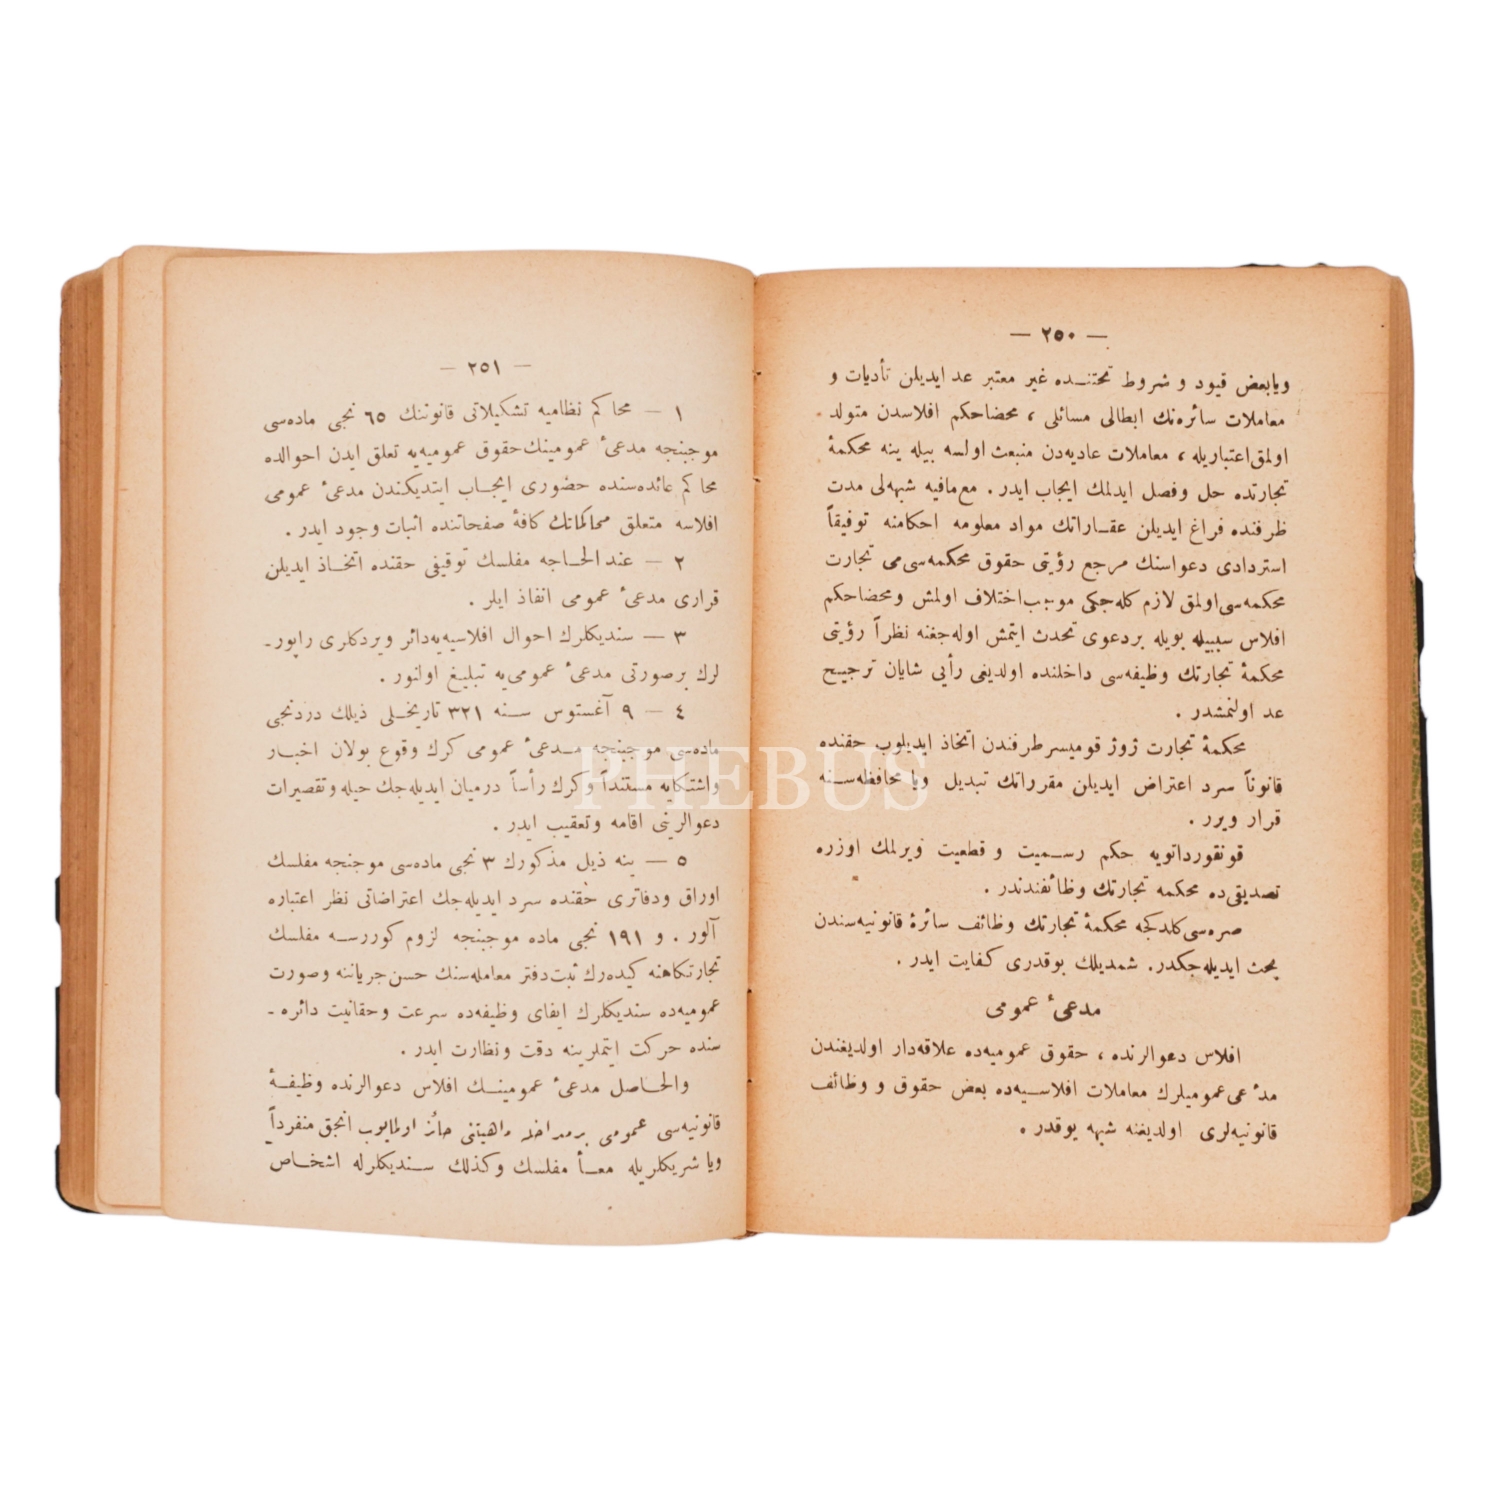 — ٢٥٠ —
ویابعض قیود و شروط تحتنـده غیر معتبر عد ایدیلن تأدیات و
معاملات سائره‌نك ابطالی مسائلی ، محضاحکم افلاسدن متولد
اولمق‌اعتباریله ، معاملات عادیه‌دن منبعث اولسه بیله ینه محکمهٔ
تجارتده حل وفصل ایدلمك ایجاب ایدر . مع‌مافیه شبهه‌لی مدت
ظرفنده فراغ ایدیلن عقـاراتك مواد معلومه احکامنه توفیقاً
استردادی دعواسنك مرجع رؤیتی حقوق محکمه‌سی‌می تجارت
محکمه‌سی‌اولمق لازم کله‌جکی موجب‌اختلاف اولمش ومحضاحکم
افلاس سببیله بویله بردعوی تحدث ایتمش اوله‌جغنه نظراً رؤیتی
محکمهٔ تجارتك وظیفه‌سی داخلنده اولدیغی رأیی شایان ترجیـح
عد اولنمشدر .
محکمهٔ تجارت ژوژ قومیسر طرفندن اتخاذ ایدیلوب حقنده
قانوناً سرد اعتراض ایدیلن مقرراتك تبدیل ویا محافظه‌سـنه
قرار ویرر .
قونقورداتویه حکم رسـمیت و قطعیت ویرلمك اوزره
تصدیقی‌ده محکمه تجارتك وظائفندندر .
صره‌سی‌کلدکجه محکمهٔ تجارتك وظائف سائرهٔ قانونیه‌سندن
بحث ایدیله‌جکدر. شمدیلك بوقدری کفایت ایدر .
مدعیٔ عمومی
افلاس دعوالرنده ، حقوق عمومیه‌ده علاقه‌دار اولدیغندن
مدعی‌عمومیلرك معاملات افلاسـیه‌ده بعض حقوق و وظائف
قانونیه‌لری اولدیغنه شبهه یوقدر .
— ٢٥١ —
١ — محاکم نظامیه تشکیلاتی قانوننك ٦٥ نجی ماده‌سی
موجبنجه مدعیٔ عمومینك‌حقوق عمومیه‌یه تعلق ایدن احوالده
محاکم عائده‌سنده حضوری ایجـاب ایتدیکندن مدعیٔ عمومی
افلاسه متعلق محاکماتك کافهٔ صفحاتنده اثبات وجود ایدر .
٢ — عندالحـاجه مفلسك توقیفی حقنده اتخـاذ ایدیلن
قراری مدعیٔ عمومی انفاذ ایلر .
٣ — سندیکلرك احوال افلاسیه‌یه‌دائر ویردکلری راپور-
لرك برصورتی مدعیٔ عمومی‌یه تبلیغ اولنور .
٤ — ٩ آغستوس سـنه ٣٢١ تاریخـلی ذیلك دردنجی
ماده‌سی موجبنجه مـدعیٔ عمومی کرك وقوع بولان اخبـار
واشتکایه مستنداً وکرك رأساً درمیان ایدیله‌جك حیله وتقصیرات
دعوالرینی اقامه وتعقیب ایدر .
٥ — ینه ذیل مذکورك ٣ نجی ماده‌سی موجنجه مفلسك
اوراق ودفاتری حقنده سرد ایدیله‌جك اعتراضاتی نظر اعتباره
آلور . و ١٩١ نجی ماده موجبنجه لزوم کوررسـه مفلسك
تجارتکاهنه کیده‌رك ثبت‌دفتر معامله‌سنك حسن‌جریاننه وصورت
عمومیه‌ده سندیکلرك ایفای وظیفه‌ده سرعت وحقانیت دائره -
سنده حرکت ایتملرینه دقت ونظارت ایدر .
والحـاصل مدعیٔ عمومینـك افلاس دعوالرنده وظیفـهٔ
قانونیه‌سی عمومی بر مداخله ماهیتنی حائز اولمایوب انجق منفرداً
ویا شریکلریله معـاً مفلسك وکذلك سـندیکلرله اشخـاص
PHEBUS